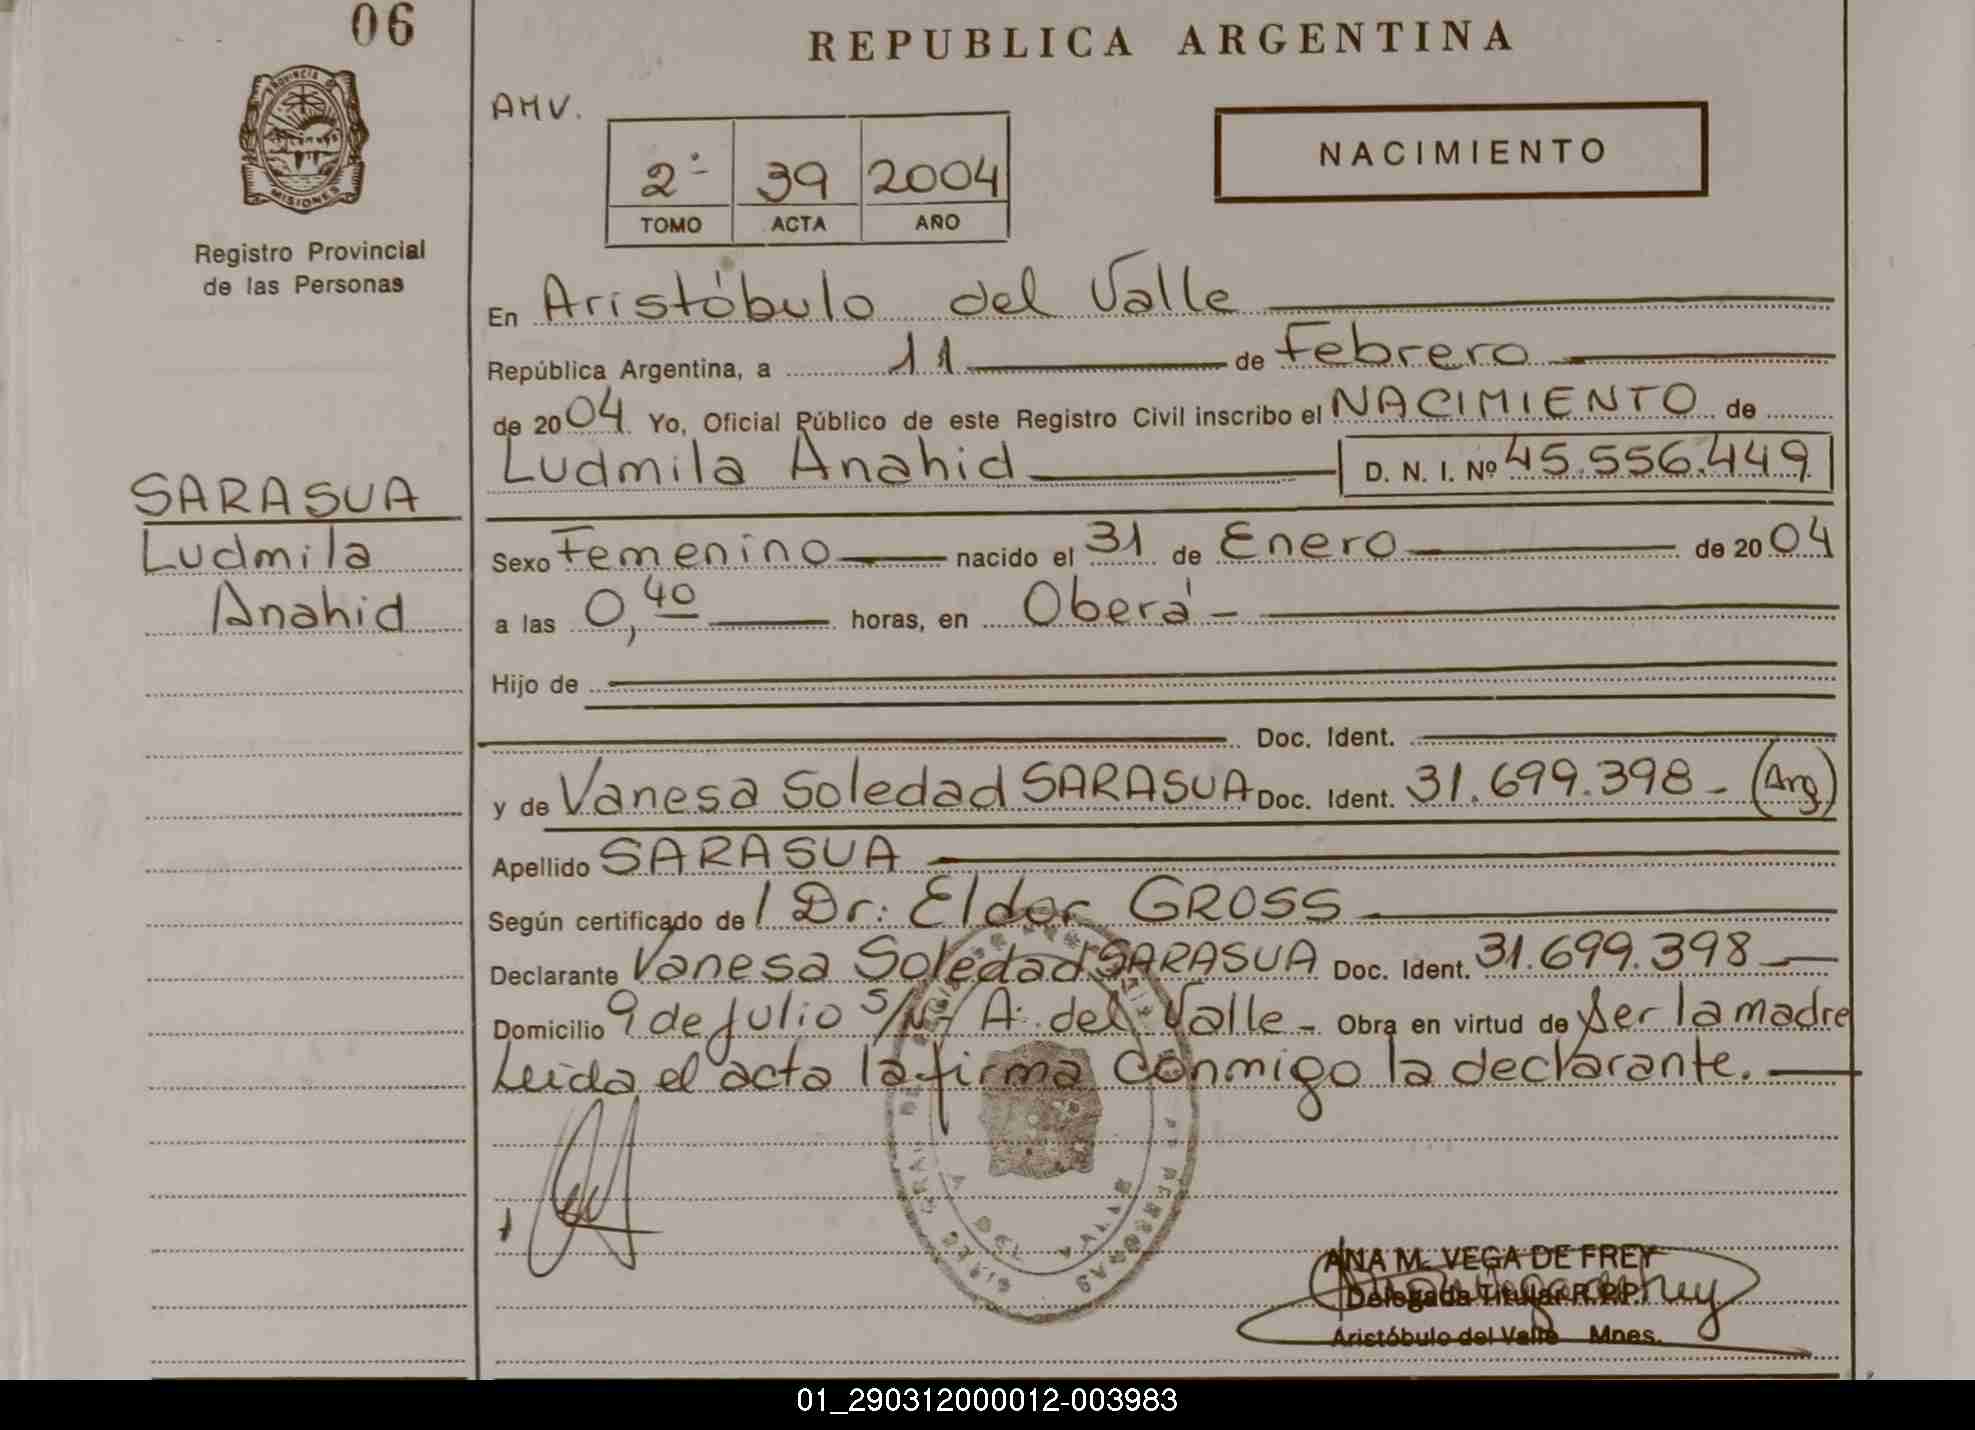 06
REPUBLICA ARGENTINA
PROVINCIA DE
MISIONES
Registro Provincial
de las Personas
AMV.
2º 39 2004
TOMO ACTA AÑO
NACIMIENTO
En Aristóbulo del Valle
República Argentina, a 11 de Febrero
de 2004 Yo, Oficial Público de este Registro Civil inscribo el NACIMIENTO de
Ludmila Anahid D. N. I. Nº 45.556.449
SARASUA
Ludmila
Anahid
Sexo Femenino nacido el 31 de Enero de 2004
a las 0,40 horas, en Oberá -
Hijo de
Doc. Ident.
y de Vanesa Soledad SARASUA Doc. Ident. 31.699.398 - (Arg)
Apellido SARASUA
Según certificado de / Dr: Eldor GROSS
Declarante Vanesa Soledad SARASUA Doc. Ident. 31.699.398
Domicilio 9 de Julio s/N - A. del Valle - Obra en virtud de ser la madre
Leida el acta la firma conmigo la declarante.
A. DEL VALLE
ANA M. VEGA DE FREY
Delegada Titular R.P.P.
Aristóbulo del Valle Mnes.
01_290312000012-003983